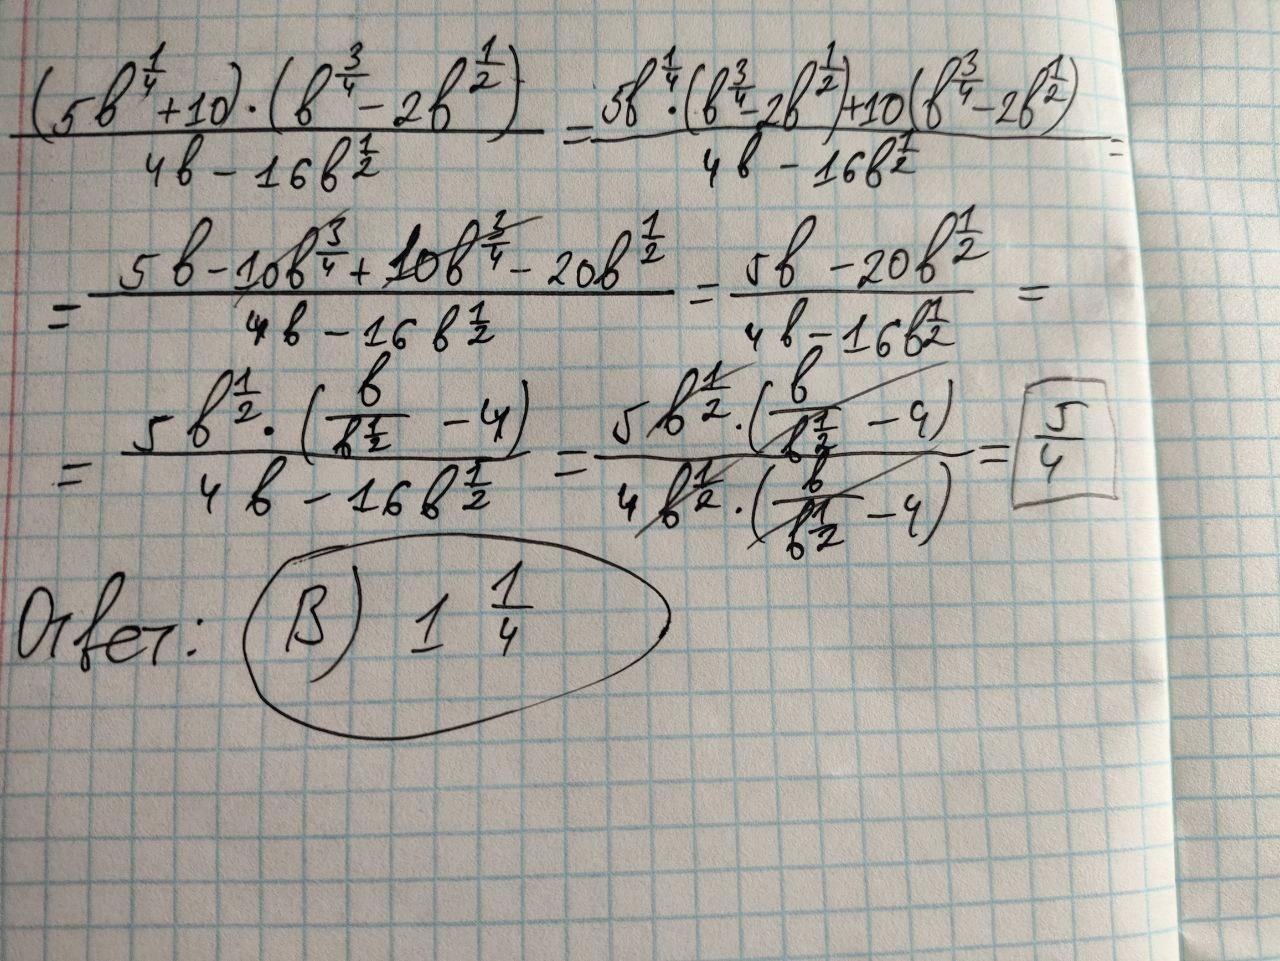 (5b^{1/4}+10)·(b^{3/4}-2b^{1/2})/(4b-16b^{1/2}) = (5b^{1/4}·(b^{3/4}-2b^{1/2})+10(b^{3/4}-2b^{1/2}))/(4b-16b^{1/2}) =
= (5b-10b^{3/4}+10b^{3/4}-20b^{1/2})/(4b-16b^{1/2}) = (5b-20b^{1/2})/(4b-16b^{1/2}) =
= (5b^{1/2}·(b/b^{1/2}-4))/(4b-16b^{1/2}) = (5b^{1/2}·(b/b^{1/2}-4))/(4b^{1/2}·(b/b^{1/2}-4)) = 5/4
Ответ: В) 1 1/4